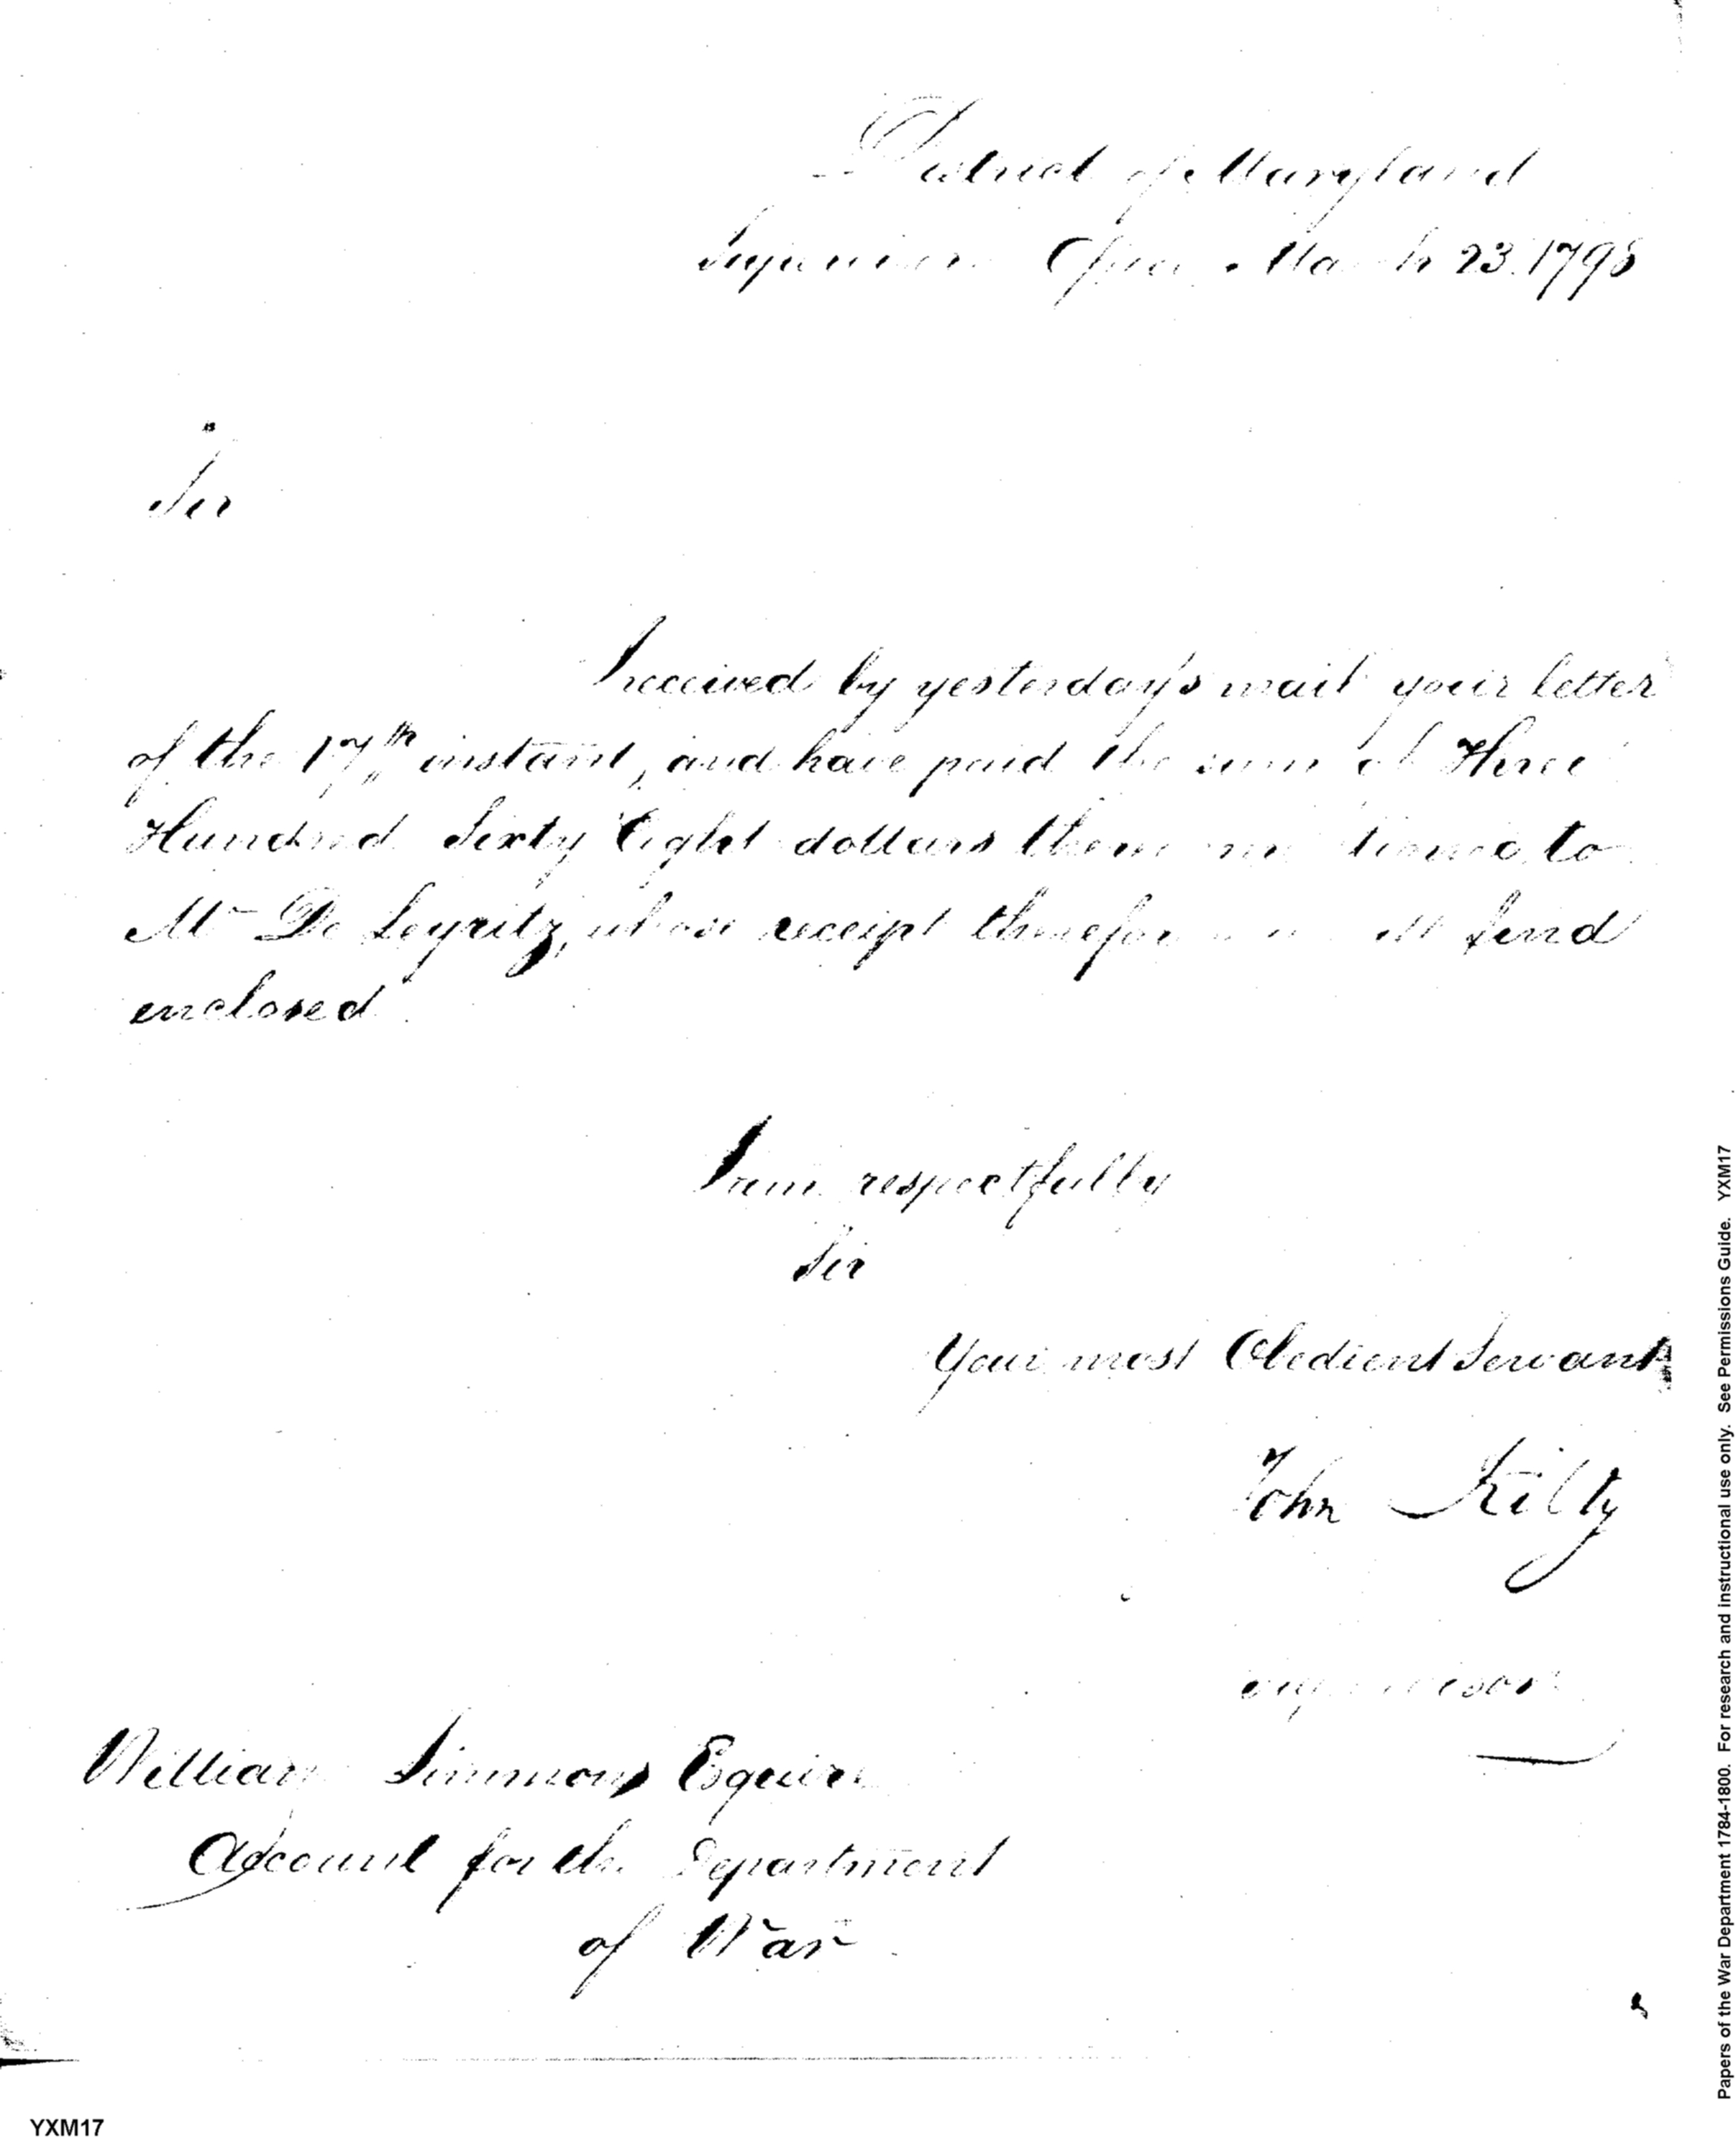 District of Maryland
Supervisor's Office March 23. 1798
Sir
I received by yesterday's mail your letter
of the 17th instant, and have paid the sum of Three
Hundred Sixty Eight dollars therein mentioned to
Mr De Leyritz, whose receipt therefor you will find
enclosed.
I am respectfully
Sir
Your most Obedient Servant
John Kilty
Supervisor
William Simmons Esquire
Account for the Department
of War
YXM17
Papers of the War Department 1784-1800. For research and instructional use only. See Permissions Guide. YXM17